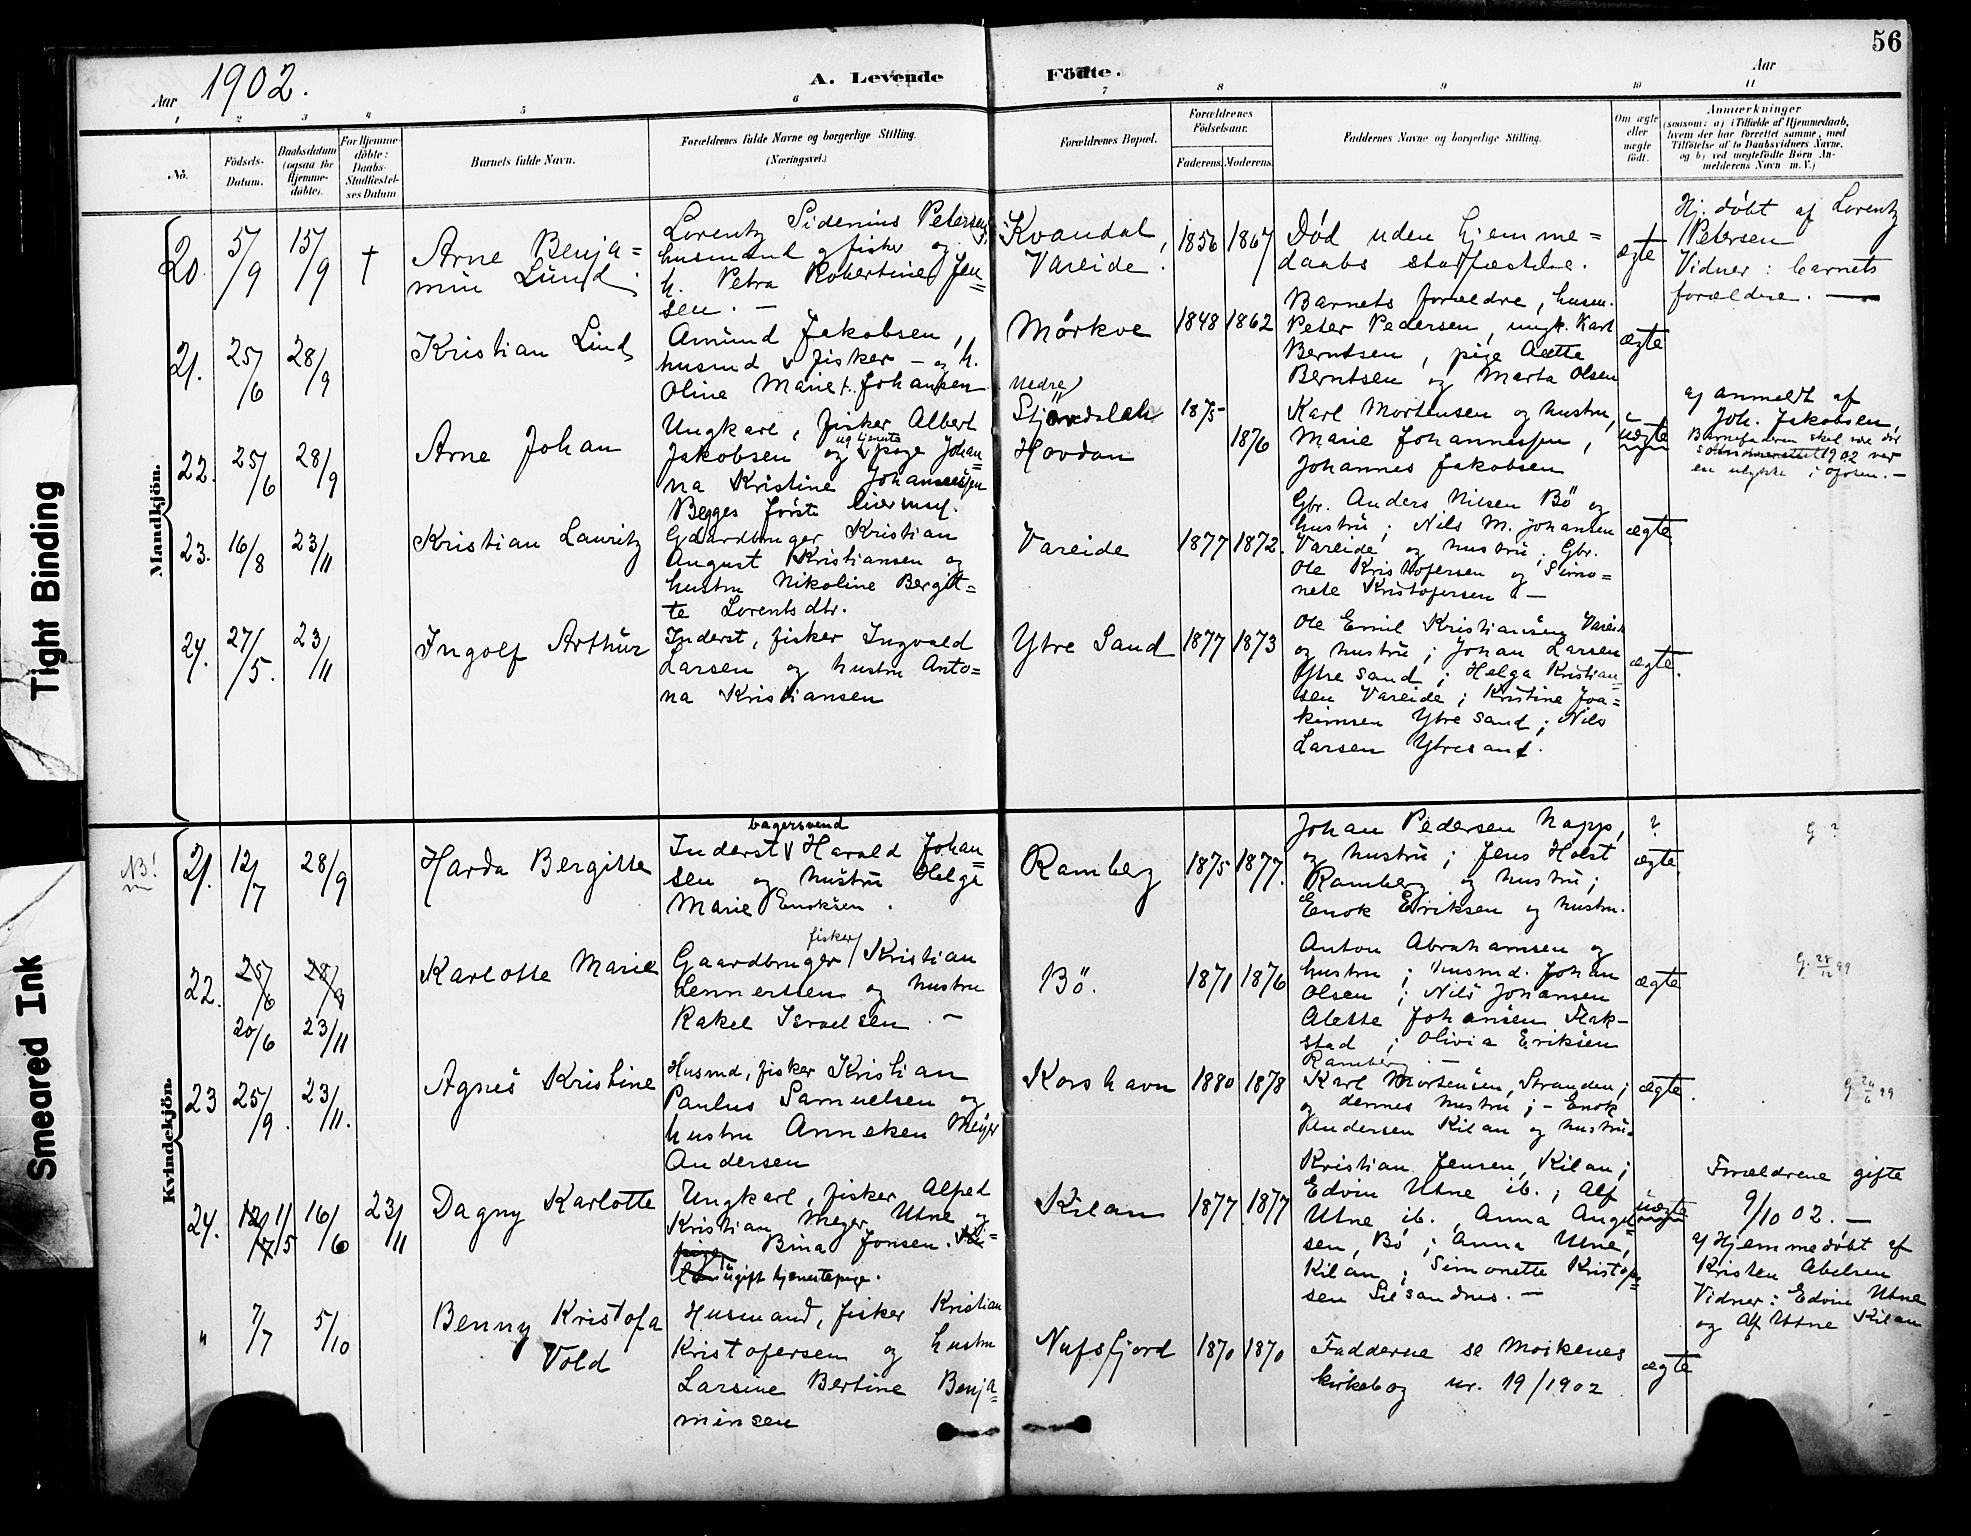 56
Aar 1902.
A. Levende Födte.
Aar
1 2 3 4 5 6 7 8 9 10 11
No.
Födsels-
Datum.
Daabsdatum
(ogsaa for
Hjemme-
döbte).
For Hjemme-
döbte:
Daabs-
Stadfæstel-
ses Datum
Barnets fulde Navn.
Forældrenes fulde Navne og borgerlige Stilling.
(Næringsvei.)
Forældrenes Bopæl.
Forældrenes
Födselsaar.
Faderens. Moderens.
Faddernes Navne og borgerlige Stilling.
Om ægte
eller
uægte
födt.
Anmærkninger
(saasom: a) i Tilfælde af Hjemmedaab,
hvem der har forrettet samme, med
Tilföielse af to Daabsvidners Navne,
og b) ved uægtefödte Börn An-
melderens Navn m. V.)
Mandkjön.
20. 5/9 15/9 †
Arne Benja=
min Lund
Lorentz Sidenius Petersen,
husmand og fisker og
h. Petra Robertine Jen=
sen. —
Kvandal,
Vareide.
1856 1867
Död uden hjemme=
daabs stadfæstelse.
ægte
Hj. döbt af Lorentz
Petersen
Vidner: barnets
forældre. —
21. 25/6 28/9
Kristian Lind
Amund Jakobsen,
husmd & fisker – og h.
Oline Marie f. Johansen
Mörkve
1848 1862
Barnets forældre, husm.
Peter Pedersen, ungk. Karl
Berntsen, pige Aette
Berntsen og Marta Olsen
ægte
22. 25/6 28/9
Arne Johan
Ungkarl, fisker Albert
Jakobsen og ug tjeneste pige Johan=
na Kristine Johannessen
Begges förste leiermaal.
Nedre
Hovdan
1875 1876
Karl Mortensen og hustru,
Marie Johannessen,
Johannes Jakobsen
uægte
a) anmeldt af
Joh. Jakobsen,
Barnefaderen skal være död
1902 ved
en ulykke i Ofoten. –
23. 16/8 23/11
Kristian Lauritz
Gaardbruger Kristian
August Kristiansen og
hustru Nikoline Bergit=
te Lorentsdtr.
Vareide
1877 1872.
Gbr. Anders Nilsen Bö og
hustru; Nils M. Johansen
Vareide og hustru; Gbr.
Ole Kristofersen og Simo=
nete Kristofersen —
ægte
24. 27/5. 23/11
Ingolf Arthur
Inderst, fisker Ingvald
Larsen og hustru Anto=
na Kristiansen
Ytre Sand
1877 1873
Ole Emil Kristiansen Vareide
og hustru; Johan Larsen
Ytre Sand; Helga Kristian=
sen Vareide; Kristine Joa=
kimsen Ytre Sand; Nils
Larsen Ytresand.
ægte.
Kvindekjön.
NB!
21. 12/7 28/9
Harda Bergitte
bagersvend
Inderst Harald Johan=
sen og hustru Helga
Marie Enoksen.
Ramberg
1875 1877.
Johan Pedersen Napp,
og hustru; Jens Holst
Ramberg og hustru;
Enok Eriksen og hustru.
?
ægte.
G ?
22. 25/6 28/9
20/6 23/11
Karlotte Marie
fisker
Gaardbruger Kristian
Lennertsen og hustru
Rakel Israelsen. —
Bö.
1871 1876
Anton Abrahamsen og
hustru; Husmd. Johan
Olsen; Nils Johansen
Alette Johansen Flak-
stad; Olivia Eriksen
Ramberg. —
ægte
G. 28/12 99
23 25/9. 23/11.
Agnes Kristine
Husmd, fisker Kristian
Paulus Samuelsen og
hustru Anneken Meyer
Andersen
Korshavn
1880 1878
Karl Mortensen, Stranden;
og dennes hustru; – Enok
Andersen Kilan og hustru.
ægte.
G 24/6 99
24. 12/7 11/5 16/6 23/11
Dagny Karlotte
Ungkarl, fisker Alfred
Kristian Meyer Utne og
Bina Jonsen.
ugift tjenestepige.
Kilan
1877 1877
Kristian Jensen, Kilan;
Edvin Utne ib.; Alf
Utne ib., Anna Angel=
sen, Bö; Anna Utne,
Kilan; Simonette Kristofer=
sen Silsandnes. —
uægte
Forældrene gifte
9/10 02. —
a) Hjemmedöbt af
Kristen Abelsen
Vidner: Edvin Utne
og Alf Utne Kilan
" 7/7 5/10
Benny Kristofa
Vold
Husmand, fisker Kristian
Kristofersen og hustru
Larsine Bertine Benja=
minsen
Nufsfjord
1870 1870
Fadderne se Moskenes
kirkebog nr. 19/1902
ægte
Tight Binding
Smeared Ink